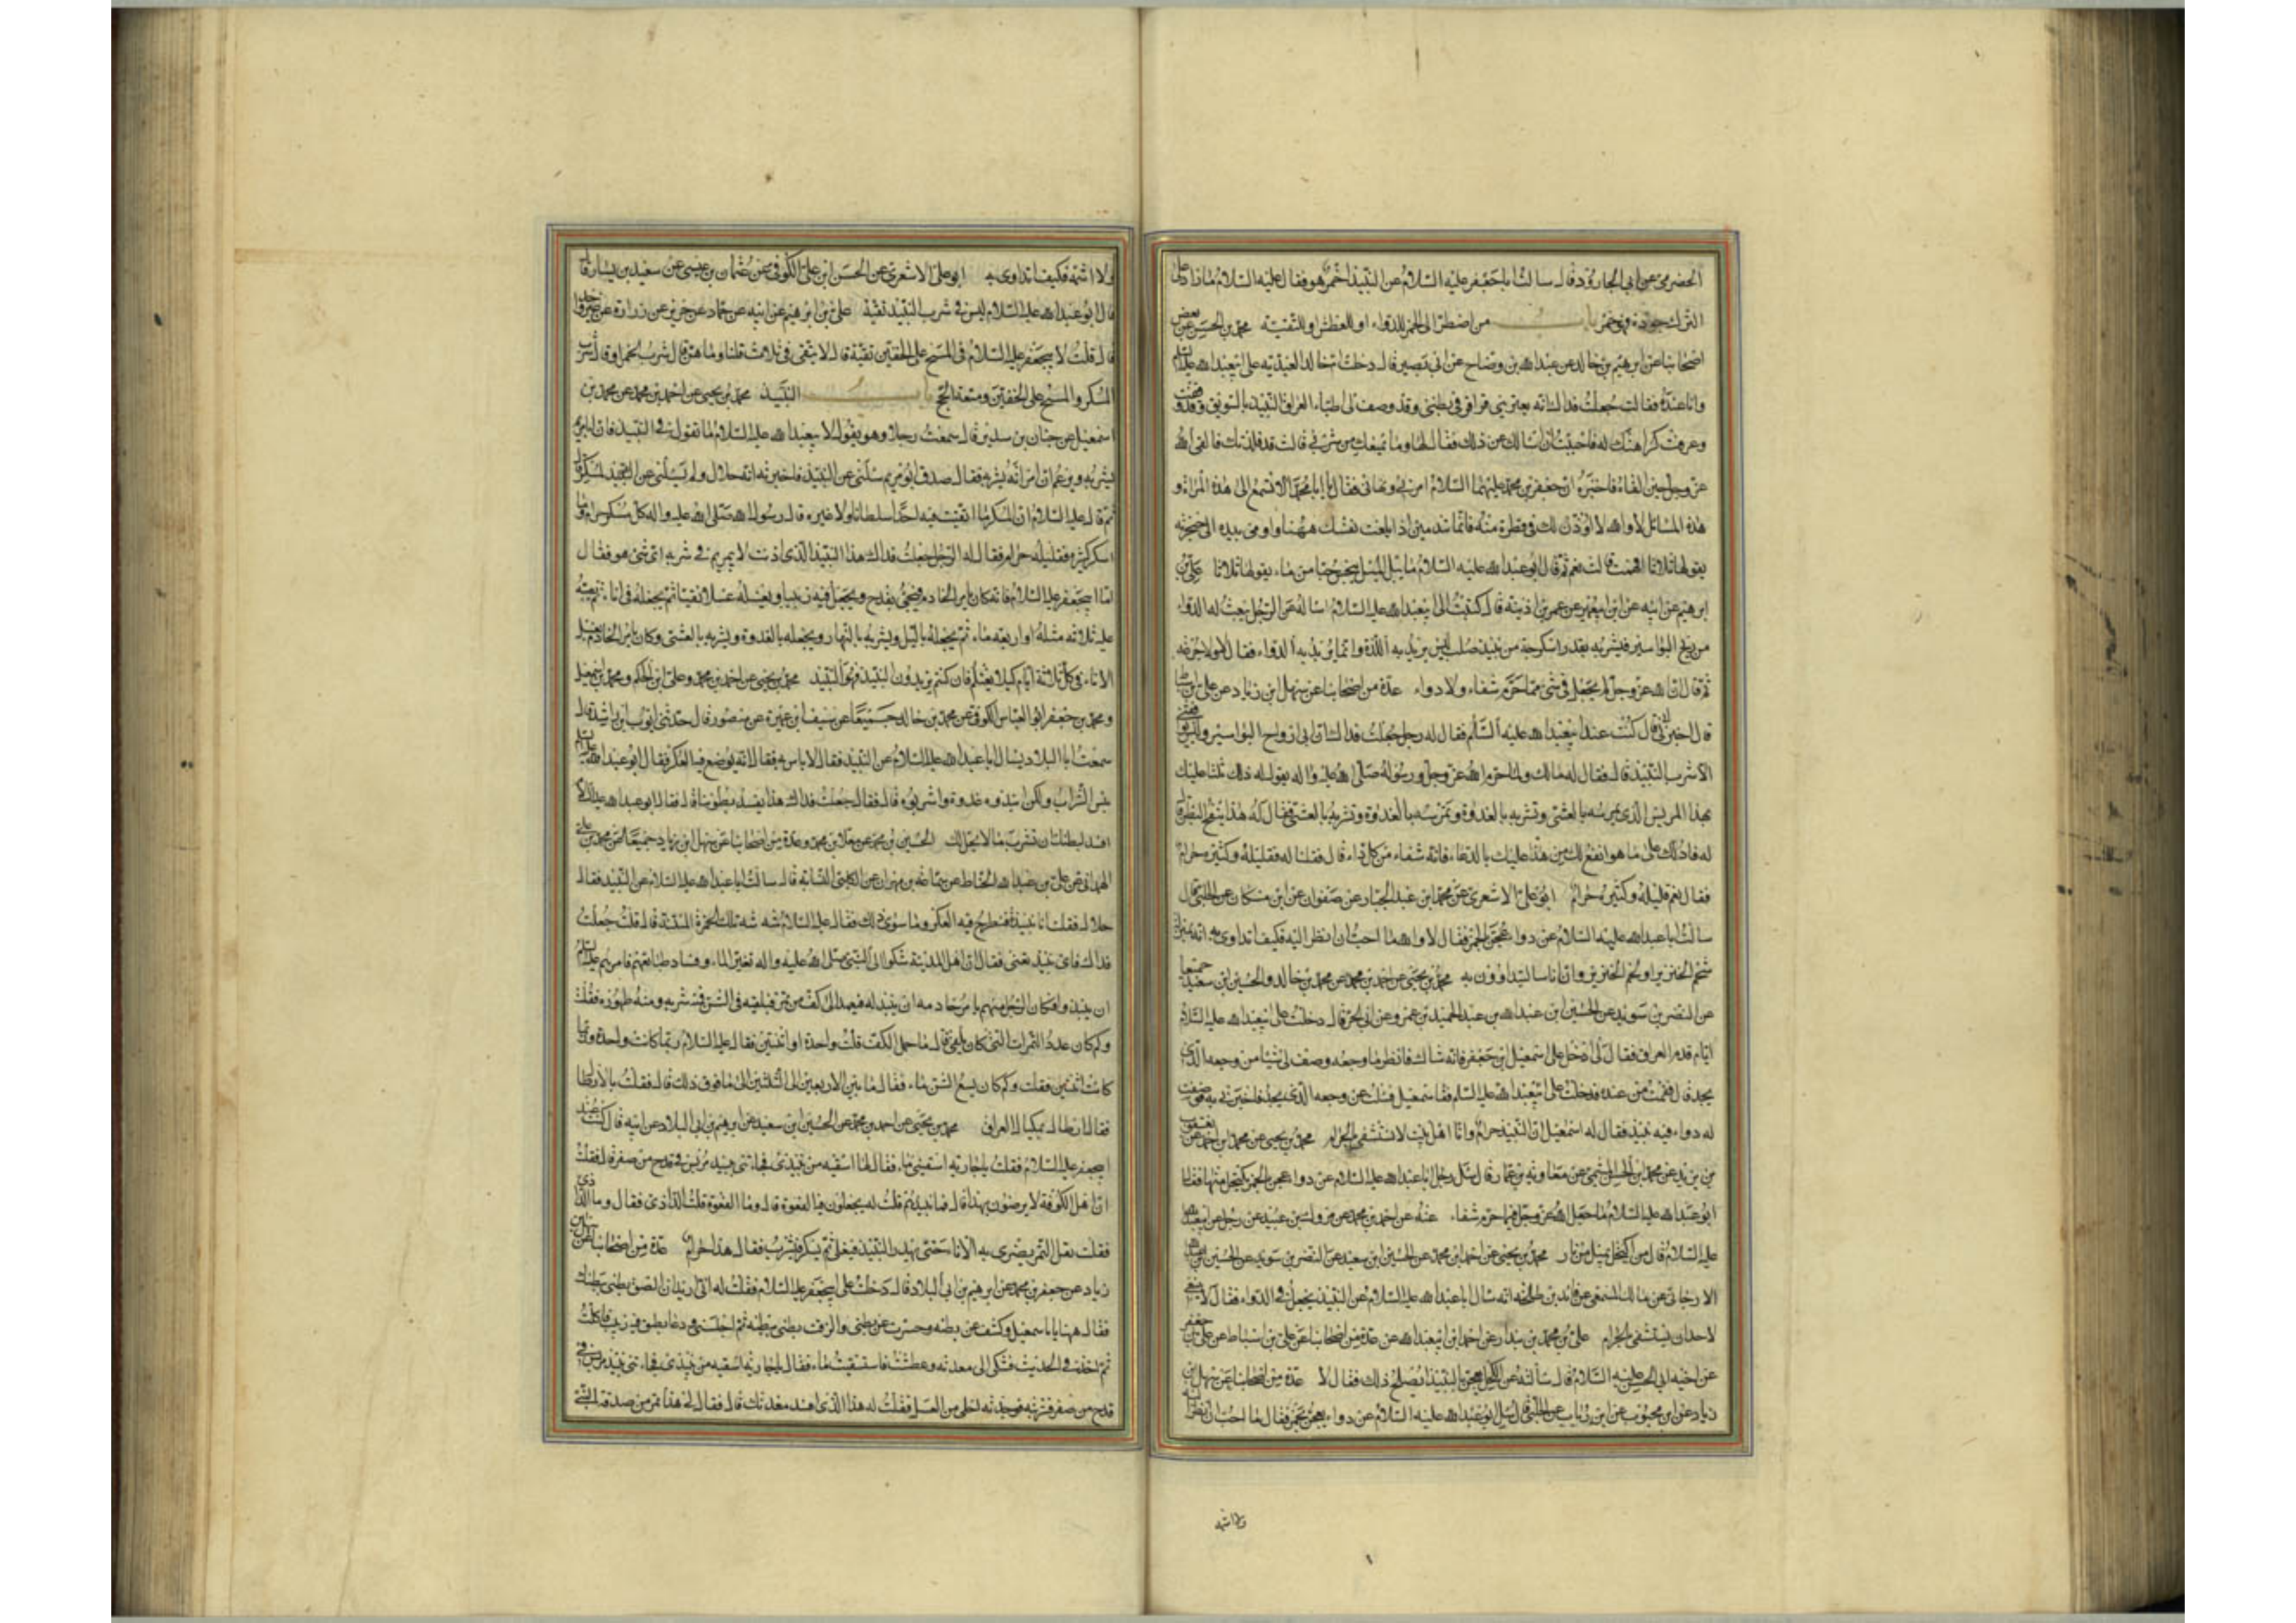 الحضرمي عن ابي الجارود قال سالت ابا جعفر عليه السلام عن النبيذ اخمر هو فقال عليه السلام ما زاد على
الترك جودة فهو خمر باب من اضطر الى الخمر للدواء او للعطش او للتقية محمد بن الحسن عن بعض
اصحابنا عن ابرهيم بن خالد عن عبدالله بن وضاح عن ابي بصير قال دخلت ام خالد العبدية على ابيعبدالله عليه السلام
وانا عنده فقالت جعلت فداك انه يعتريني قراقر في بطني وقد وصف لي اطباء العراق النبيذ بالسويق وقد وقفت
وعرفت كراهتك له فاحببت ان اسالك عن ذلك فقال لها وما يمنعك من شربه قالت قد قلدتك فالقى الله
عز وجل حين القاه فاخبره ان جعفر بن محمد عليهما السلام امرني ونهاني فقال يا ابا محمد الا تسمع الى هذه المراة و
هذه المسائل لا والله لا اوذن لك في قطرة منه فانما تندمين اذا بلغت نفسك ههنا واومى بيده الى حنجرته
يقولها ثلاثا افهمت قالت نعم ثم قال ابو عبدالله عليه السلام ما يبل الميل ينجس حبا من ماء يقولها ثلاثا علي بن
ابرهيم عن ابيه عن ابن ابيعمير عن عمر بن اذينة قال كتبت الى ابيعبدالله عليه السلام اساله عن الرجل يبعث له الدواء
من ريح البواسير فيشربه بقدر اسكرجة من نبيذ صلب ليس يريد به اللذة وانما يريد به الدواء فقال لا ولا جرعة
ثم قال ان الله عز وجل لم يجعل في شيء مما حرم شفاء ولا دواء عدة من اصحابنا عن سهل ابن زياد عن علي ابن اسباط
قال اخبرني ابي قال كنت عند ابيعبدالله عليه السلام فقال له رجل جعلت فداك ان بي ارواح البواسير وليس يوافقني
الا شرب النبيذ قال فقال له مالك ولما حرم الله عز وجل ورسوله صلى الله عليه واله يقول له ذلك ثلثا عليك
بهذا المريس الذي تمرسه بالعشي وتشربه بالغدوة وتمرسه بالغدوة وتشربه بالعشي فقال له هذا ينفخ البطن قال
له فادلك على ما هو انفع لك من هذا عليك بالدعاء فانه شفاء من كل داء قال فقلنا له فقليله وكثيره حرام
فقال نعم قليله وكثيره حرام ابو علي الاشعري عن محمد ابن عبد الجبار عن صفوان عن ابن مسكان عن الحلبي قال
سالت ابا عبدالله عليه السلام عن دواء عجن بالخمر فقال لا والله ما احب ان انظر اليه فكيف اتداوى به انه بمنزلة
شحم الخنزير او لحم الخنزير وان اناسا ليتداوون به محمد بن يحيى عن احمد بن محمد عن محمد بن خالد والحسين ابن سعيد جميعا
عن النضر بن سويد عن الحسين ابن عبدالله عن عبد الحميد بن عمرو عن ابي الحر قال دخلت على ابيعبدالله عليه السلام
ايام قدم العراق فقال لي ادخل على اسمعيل ابن جعفر فانه شاك فانظر ما وجعه وصف لي شيئا من وجعه الذي
يجد قال فقمت من عنده فدخلت على اسمعيل فسئلته عن وجعه الذي يجد فاخبرني به فوصفت
له دواء فيه نبيذ فقال له اسمعيل ان النبيذ حرام وانا اهل بيت لا نستشفى بالحرام محمد بن يحيى عن محمد ابن احمد عن يعقوب
بن يزيد عن محمد ابن الحسن الميثمي عن معاوية بن عمار قال سئل رجل ابا عبدالله عليه السلام عن دواء عجن بالخمر يكتحل منها فقال
ابو عبدالله عليه السلام ما جعل الله عز وجل فيما حرم شفاء عنه عن احمد بن محمد عن مروك بن عبيد عن رجل عن ابيعبدالله
عليه السلام قال من اكتحل بميل من نار محمد بن يحيى عن احمد ابن محمد عن الحسين ابن سعيد عن النضر بن سويد عن الحسين بن عبدالله
الارجاني عن مالك المسمعي عن قائد بن طلحة انه سال ابا عبدالله عليه السلام عن النبيذ يجعل في الدواء فقال لا ينبغي
لاحد ان يستشفي بالحرام علي بن محمد بن بندار عن احمد ابن ابيعبدالله عن عدة من اصحابنا عن علي بن اسباط عن علي بن جعفر
عن اخيه ابي الحسن عليه السلام قال سالته عن الكحل يعجن بالنبيذ ايصلح ذلك فقال لا عدة من اصحابنا عن سهل ابن
زياد عن ابن محبوب عن ابن رئاب عن الحلبي قال سئل ابو عبدالله عليه السلام عن دواء يعجن بخمر فقال ما احب ان انظر اليه
ولا اشمه
ولا اشمه فكيف اتداوى به ابو علي الاشعري عن الحسن ابن علي الكوفي عن عثمان بن عيسى عن سعيد بن يسار قال
قال ابو عبدالله عليه السلام ليس في شرب النبيذ تقية علي بن ابرهيم عن ابيه عن حماد عن حريز عن زرارة عن غير واحد
قال قلت لابيجعفر عليه السلام في المسح على الخفين تقية قال لا يتقى في ثلاث قلنا وما هن قال شرب الخمر او قال شرب
المسكر والمسح على الخفين ومتعة الحج باب النبيذ محمد بن يحيى عن احمد بن محمد عن محمد بن
اسمعيل عن حنان بن سدير قال سمعت رجلا وهو يقول لابيعبدالله عليه السلام ما تقول في النبيذ فان ابا مريم
يشربه ويزعم انك امرته بشربه فقال صدق ابو مريم سئلني عن النبيذ فاخبرته انه حلال ولم يسئلني عن المسكر قال
ثم قال عليه السلام ان المسكر ما اتقيت فيه احدا سلطانا ولا غيره قال رسول الله صلى الله عليه واله كل مسكر حرام وما
اسكر كثيره فقليله حرام فقال له الرجل جعلت فداك هذا النبيذ الذي اذنت لابي مريم في شربه اي شيء هو فقال
اما ابيجعفر عليه السلام فانه كان يامر الخادم فيجيء بقدح ويجعل فيه زبيبا ويغسله غسلا نقيا ثم يجعله في اناء ثم يصب
عليه ثلاثة مثله او اربعة ماء ثم يجعله بالليل ويشربه بالنهار ويجعله بالغدوة ويشربه بالعشي وكان يامر الخادم بغسل
الاناء في كل ثلاثة ايام كيلا يغتلم فان كنتم تريدون النبيذ فهو النبيذ محمد بن يحيى عن احمد بن محمد وعلي ابن الحكم ومحمد بن اسمعيل
ومحمد بن جعفر ابو العباس الكوفي عن محمد بن خالد جميعا عن سيف ابن عميرة عن منصور قال حدثني ايوب ابن راشد قال
سمعت ابا البلاد يسال ابا عبدالله عليه السلام عن النبيذ فقال لا باس به فقال انه يوضع فيه العكر فقال ابو عبدالله عليه السلام
بئس الشراب ولكن انبذوه غدوة واشربوه قال فقال جعلت فداك هذا يفسد بطوننا قال فقال ابو عبدالله عليه السلام
افسد لبطنك ان تشرب ما لا يحل لك الحسين بن محمد عن معلى بن محمد وعدة من اصحابنا عن سهل ابن زياد جميعا عن محمد بن علي
الهمداني عن علي بن عبدالله الحناط عن سماعة بن مهران عن الكلبي النسابة قال سالت ابا عبدالله عليه السلام عن النبيذ فقال
حلال فقلت انا ننبذه فنطرح فيه العكر وما سوى ذلك فقال عليه السلام شه شه تلك الخمرة المنتنة قال قلت جعلت
فداك فاي نبيذ تعني فقال ان اهل المدينة شكوا الى النبي صلى الله عليه واله تغير الماء وفساد طبائعهم فامرهم عليه السلام
ان ينبذوا فكان الرجل منهم يامر خادمه ان ينبذ له فيعمد الى كف من تمر فيلقيه في الشن فمنه شربه ومنه طهوره فقلت
وكم كان عدد التمرات التي كان يلقي قال ما حمل الكف قلت واحدة او اثنتين فقال عليه السلام ربما كانت واحدة وربما
كانت اثنتين فقلت وكم كان يسع الشن ماء فقال ما بين الاربعين الى الثلثين الى ما فوق ذلك قال فقلت بالارطال
فقال ارطال بمكيال العراق محمد بن يحيى عن احمد بن محمد عن الحسين ابن سعيد عن ابرهيم بن ابي البلاد عن ابيه قال كنت عند
ابيجعفر عليه السلام فقلت يا جارية اسقيني ماء فقال لها اسقيه من نبيذي فجاءتني بنبيذ مريس في قدح من صفر قال فقلت
ان اهل الكوفة لا يرضون بهذا قال فما نبيذهم قلت له يجعلون فيه القعوة قال وما القعوة قلت الداذي فقال وما الداذي
فقلت ثفل التمر يضرى به الاناء حتى يهدر النبيذ فيغلى ثم يسكر فيشرب فقال هذا حرام عدة من اصحابنا عن سهل بن
زياد عن جعفر بن محمد عن ابرهيم بن ابي البلاد قال دخلت على ابيجعفر عليه السلام فقلت له اني اريد ان الصق بطني ببطنك
فقال ههنا يا ابا اسمعيل وكشف عن بطنه وحسرت عن بطني والزقت بطني ببطنه ثم اجلسني ودعا بطبق فيه زبيب فاكلت
ثم اخذ في الحديث فشكى الى معدته وعطشت فاستسقيت ماء فقال يا جارية اسقيه من نبيذي فجاءتني بنبيذ مريس في
قدح من صفر فشربته فوجدته احلى من العسل فقلت له هذا الذي افسد معدتك قال فقال لي هذا تمر من صدقة النبي